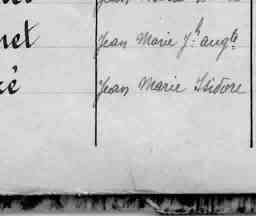 net Jean Marie Jh augte
ré Jean Marie Isidore